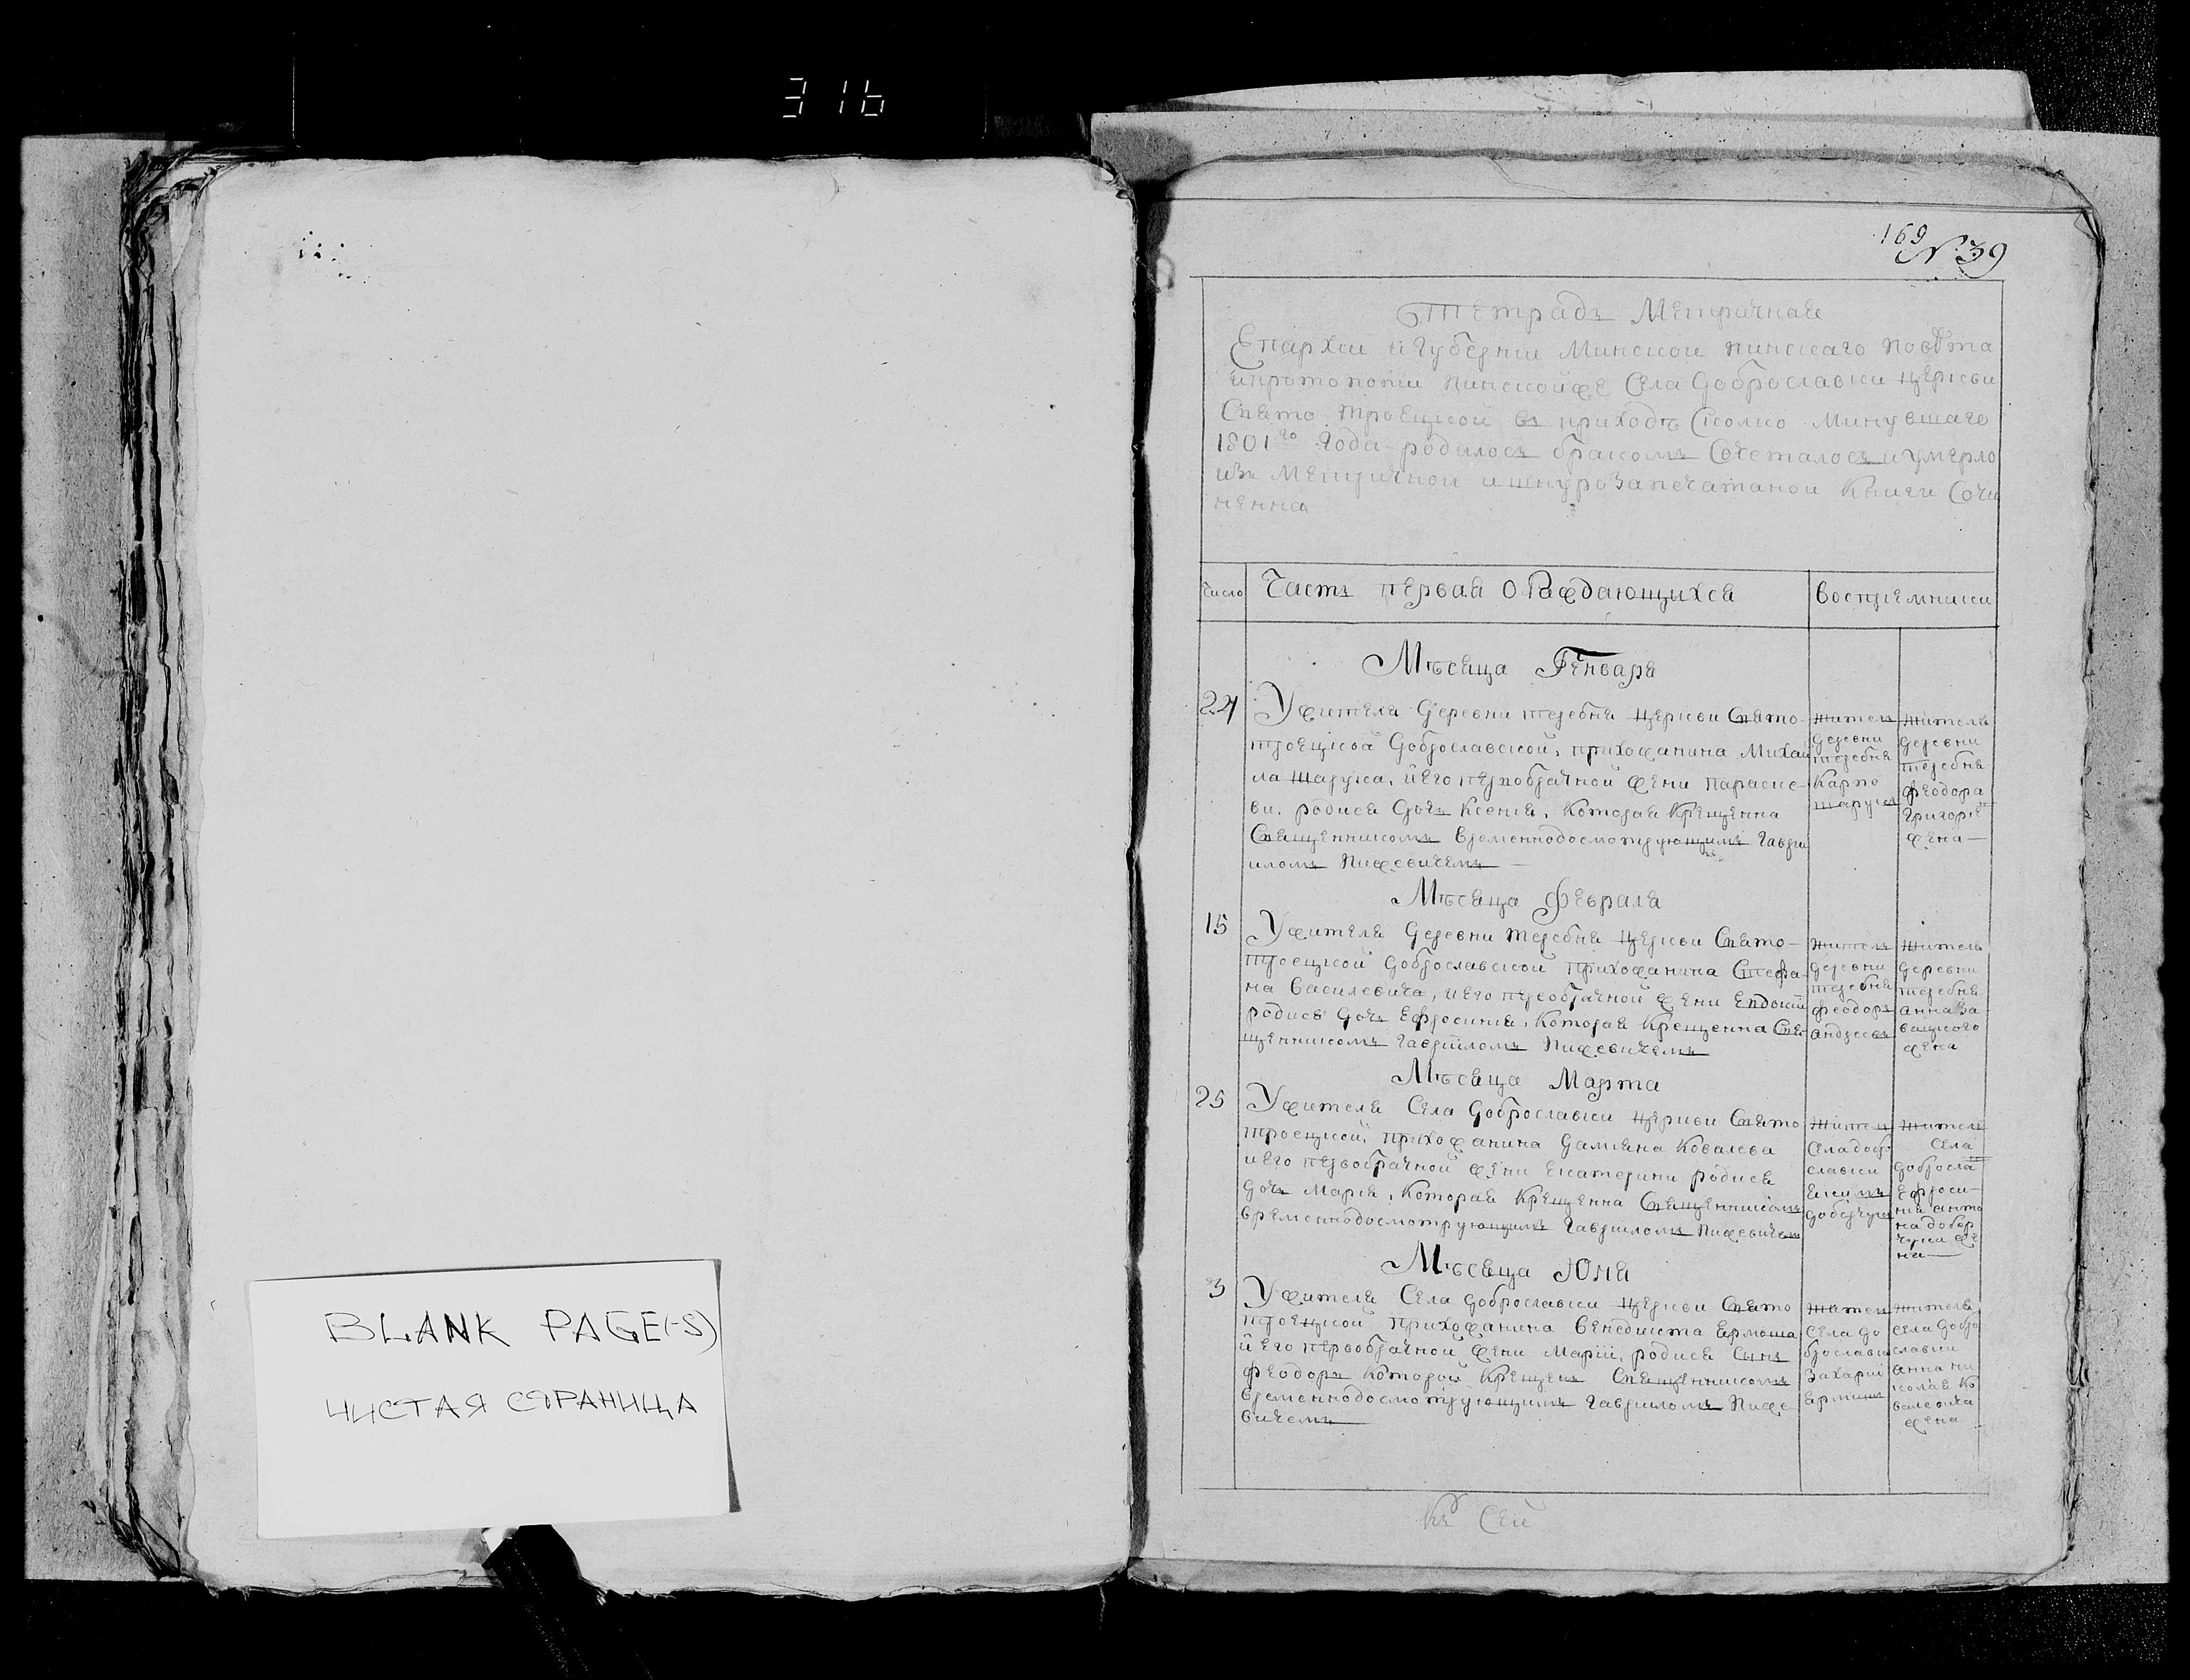 316
BLANK PAGE(-S)
ЧИСТАЯ СТРАНИЦА
169
N 39
Тетрадь Метричная
Епархіи и Губерніи Минской пинскаго повѣта
ипротопопіи пинскойже Села Доброславки Церкви
Свято Троецкой въ приходѣ Сколко минувшаго
1801го Года родилось бракомъ Сочеталось и умерло
изъ Метричной ишнурозапечатаной Книги Сочи
ненна
Число
Часть первая О Раждающихся
воспріемники
Мѣсяца Генваря
24
Ужителя Деревни теребня Церкви Свято
троецкой Доброславской, прихожанина Михаи
ла Шарука, иего первобрачной жени параске
ви, родися Дочь Ксенія, Которая Крещенна
Священникомъ временнодосмотрующимъ Гаври
иломъ Пижевичемъ
житель
деревни
теребня
Карпъ
шарукъ
жителя
деревни
теребня
феодора
Григорія
жена
Мѣсяца Февраля
15
Ужителя Деревни теребня Церкви Свято
троецкой Доброславской прихожанина Стефа
на Василевича, иего первобрачной жени Евдокіи
родися Дочь Ефросинія, Которая Крещенна Свя
щенникомъ Гавріиломъ Пижевичемъ
житель
деревни
теребня
феодоръ
андреевъ
жителя
деревни
теребня
анна За
вацкого
жена
Мѣсяца Марта
25
Ужителя Села Доброславки Церкви Свято
троецкой прихожанина Даміяна Ковалева
иего первобрачной жени Екатерини родися
Дочь Марія, Которая Крещенна Священникомъ
временнодосмотрующимъ Гавріиломъ Пижевичем
житель
Села добро
славки
Якимъ
доберчукъ
жителя
Села
добросла
Ефроси
нія анто
на добер
чука же
на
Мѣсяца Юнія
3
Ужителя Села доброславки Церкви Свято
троецкой прихожанина венедикта Ермаша
и Его первобрачной жени Маріи, родися Сынъ
феодоръ Которой Крещенъ Священникомъ
временнодосмотрующимъ Гавриломъ Пиже
вичемъ
житель
Села до
брославки
Захарій
Ермашъ
жителя
Села добро
славки
анна ни
колая Ко
валевича
жена
Къ Сей